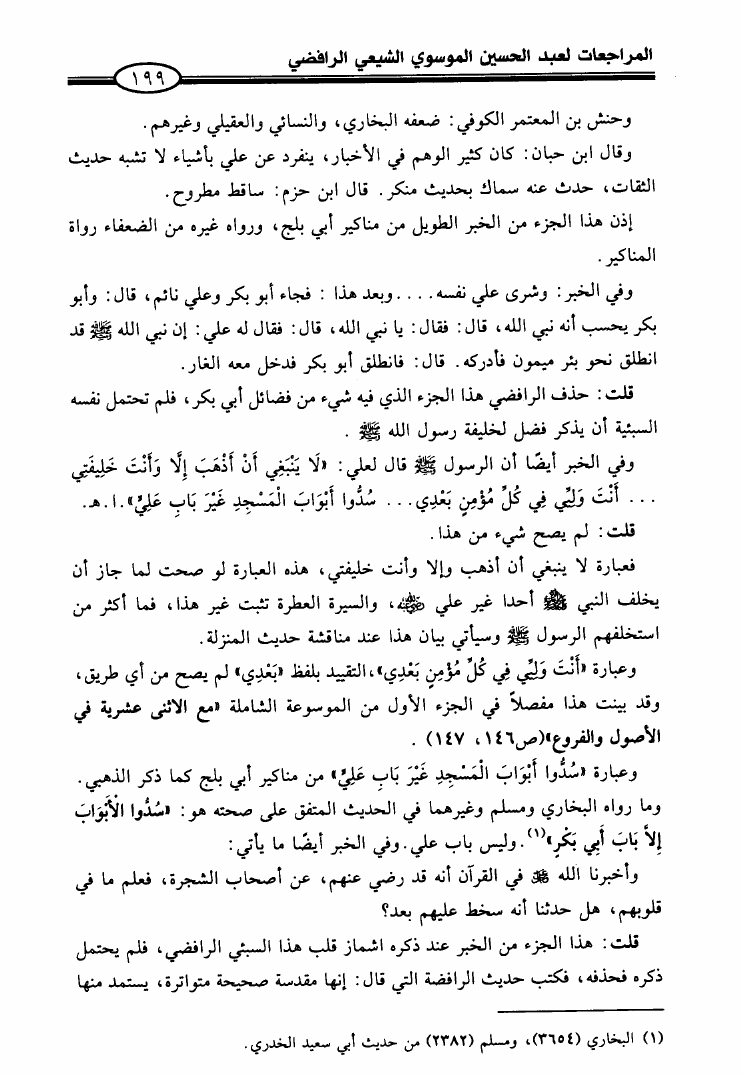 المراجعات لعبد الحسين الموسوي الشيعي الرافضي
١٩٩
وحنش بن المعتمر الكوفي: ضعفه البخاري، والنسائي والعقيلي وغيرهم.
وقال ابن حبان: كان كثير الوهم في الأخبار، ينفرد عن علي بأشياء لا تشبه حديث
الثقات، حدث عنه سماك بحديث منكر. قال ابن حزم: ساقط مطروح.
إذن هذا الجزء من الخبر الطويل من مناكير أبي بلج، ورواه غيره من الضعفاء رواة
المناكير.
وفي الخبر: وشرى علي نفسه....وبعد هذا : فجاء أبو بكر وعلي نائم، قال: وأبو
بكر يحسب أنه نبي الله، قال: فقال: يا نبي الله، قال: فقال له علي: إن نبي الله ﷺ قد
انطلق نحو بئر ميمون فأدركه. قال: فانطلق أبو بكر فدخل معه الغار.
قلت: حذف الرافضي هذا الجزء الذي فيه شيء من فضائل أبي بكر، فلم تحتمل نفسه
السبئية أن يذكر فضل لخليفة رسول الله ﷺ .
وفي الخبر أيضًا أن الرسول ﷺ قال لعلي: «لَا يَنْبَغِي أَنْ أَذْهَبَ إِلَّا وَأَنْتَ خَلِيفَتِي
... أَنْتَ وَلِيِّي فِي كُلِّ مُؤْمِنٍ بَعْدِي... سُدُّوا أَبْوَابَ الْمَسْجِدِ غَيْرَ بَابِ عَلِيٍّ».ا.هـ.
قلت: لم يصح شيء من هذا.
فعبارة لا ينبغي أن أذهب وإلا وأنت خليفتي، هذه العبارة لو صحت لما جاز أن
يخلف النبي ﷺ أحدا غير علي رضي الله عنه، والسيرة العطرة تثبت غير هذا، فما أكثر من
استخلفهم الرسول ﷺ وسيأتي بيان هذا عند مناقشة حديث المنزلة.
وعبارة «أَنْتَ وَلِيِّي فِي كُلِّ مُؤْمِنٍ بَعْدِي»،التقييد بلفظ «بَعْدِي» لم يصح من أي طريق،
وقد بينت هذا مفصلاً في الجزء الأول من الموسوعة الشاملة «مع الاثنى عشرية في
الأصول والفروع»(ص١٤٦، ١٤٧) .
وعبارة «سُدُّوا أَبْوَابَ الْمَسْجِدِ غَيْرَ بَابِ عَلِيٍّ» من مناكير أبي بلج كما ذكر الذهبي.
وما رواه البخاري ومسلم وغيرهما في الحديث المتفق على صحته هو: «سُدُّوا الْأَبْوَابَ
إِلاَّ بَابَ أَبِي بَكْرٍ»(١).وليس باب علي.وفي الخبر أيضًا ما يأتي:
وأخبرنا الله في القرآن أنه قد رضي عنهم، عن أصحاب الشجرة، فعلم ما في
قلوبهم، هل حدثنا أنه سخط عليهم بعد؟
قلت: هذا الجزء من الخبر عند ذكره اشماز قلب هذا السبئي الرافضي، فلم يحتمل
ذكره فحذفه، فكتب حديث الرافضة التي قال: إنها مقدسة صحيحة متواترة، يستمد منها
(١) البخاري (٣٦٥٤)، ومسلم (٢٣٨٢) من حديث أبي سعيد الخدري.